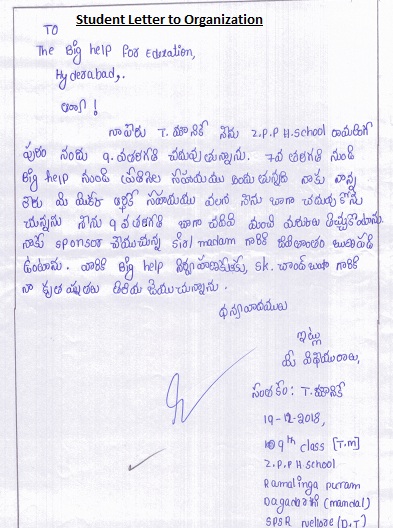 Student Letter to Organization
TO
The Big help For Education,
Hyderabad,.
నా పేరు T. మౌనిక నేను Z.P.P H.school రామలింగా
పురం నందు 9.వ తరగతి చదువుతున్నాను. 7వ తరగతి నుండి
Big help నుండి ప్రతినెల సహాయము అందుతున్నది నాకు నాన్న
లేరు మీ ఆర్థిక సహాయము వలన నేను బాగా చదువుకోని
చున్నాను నేను 9 వ తరగతి బాగా చదివి మంచి మార్కులు తెచ్చుకొంటాను.
నాకు sponsor చేయుచున్న sir/madam గారికి జీవితాంతం ఋణపడి
ఉంటాను. వారికి Big help నిర్వాహకులకు, SK. చాంద్ బాషా గారికి
నా కృతజ్ఞతలు తెలియ జేయుచున్నాను.
ధన్యవాదములు
ఇట్లు
మీ విధేయురాలు,
సంతకం: T. మౌనిక
19-12-2018,
9th class [T.m]
Z.P.P H school
Ramalinga puram
Dagadarthi (mandal)
SPSR nellore (D.T)